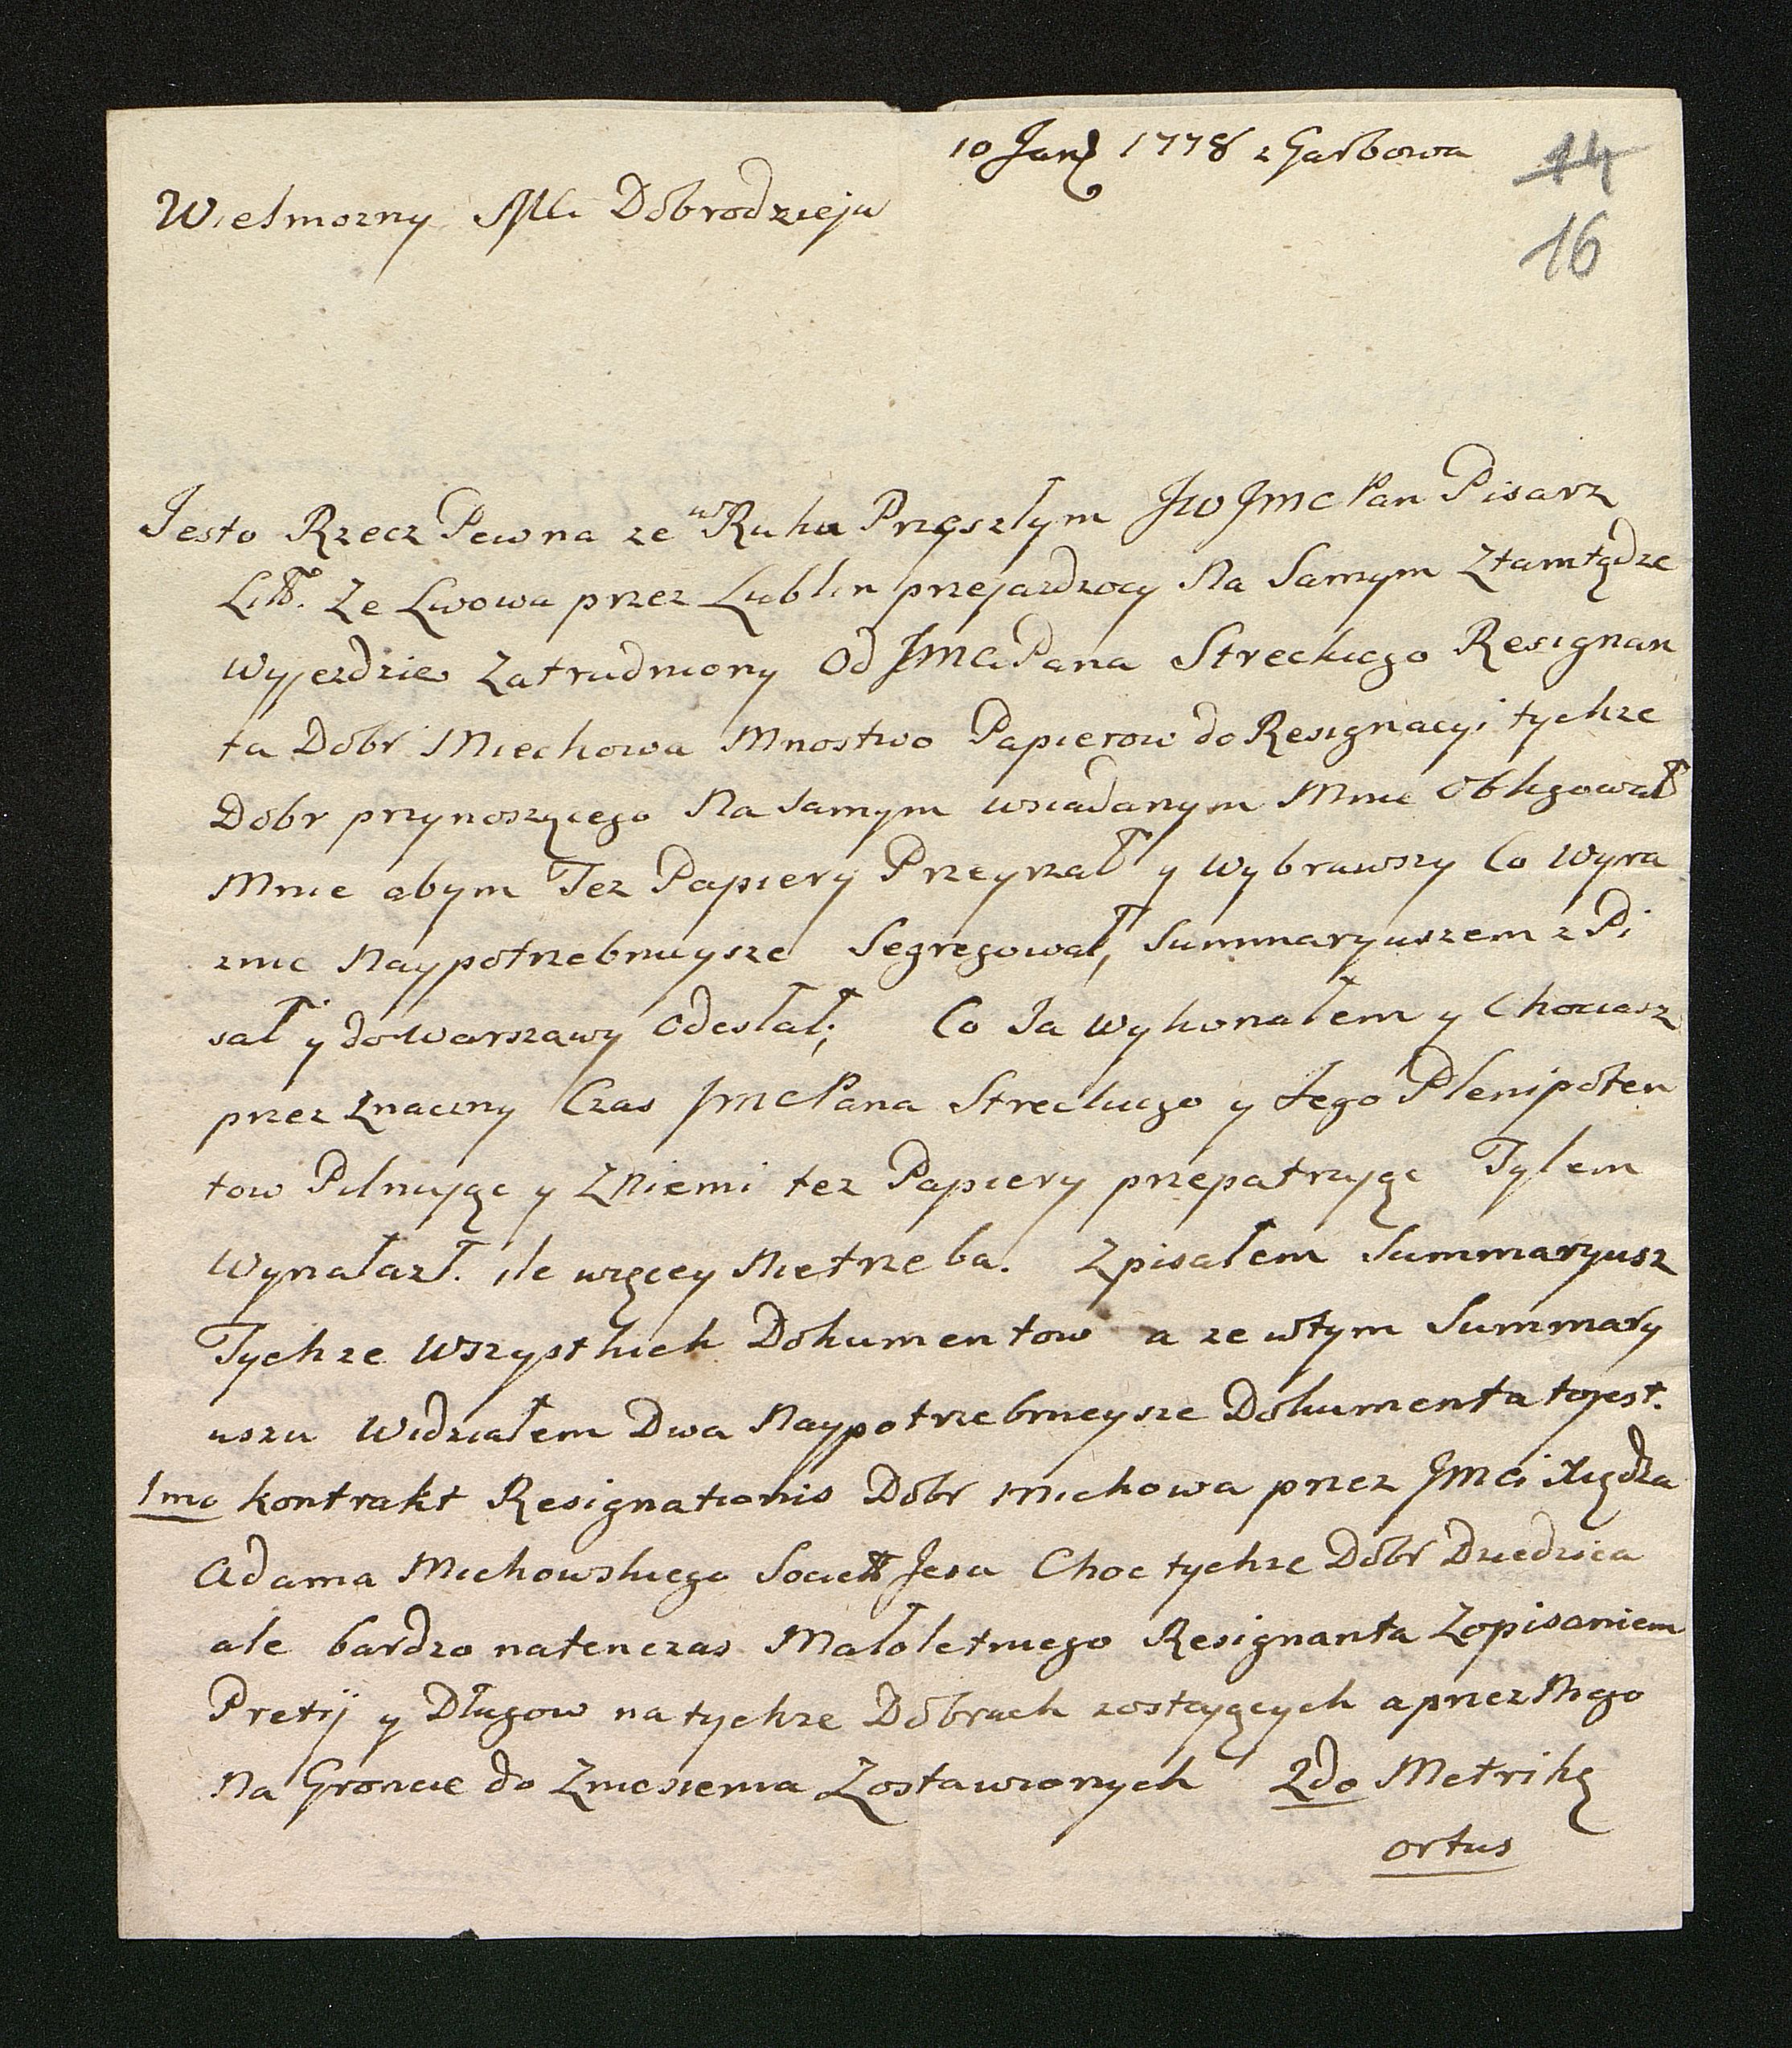 10 Jan 1778 z Garbowa
14
16
Wielmozny Mci Dobrodzieju
Jesto Rzecz Pewna ze w Ruku Przeszłym JW JMC Pan Pisarz
Litt. Ze Lwowa przez Lublin przejazdzocy Na Samym Ztamtądze
wyjezdzie Zatrudniony Od JMCi Pana Streckiego Resignan
ta Dobr Miechowa Mnostwo Papierow do Resignacyi tychze
Dobr przynoszącego Na samym wsiadanym Mnie Obligował
Mnie abym Tez Papiery Przeyrzał y wybrawszy Co Wyra
znie Naypotrzebnieysze Segregował, Summaryuszem zPi
sał y do Warszawy Odesłał; Co Ja wykonałem y Chociasz
przez Znaczny Czas JMC Pana Streckiego y Jego Plenipoten
tow Pilnując y Zniemi tez Papiery przepatrując Tylem
Wynalazł. ile więcey Nietrzeba. Zpisałem Summaryusz
Tychze Wszystkich Dokumentow a ze wtym Summary
uszu Widziałem Dwa Naypotrzebnieysze Dokumenta tojest.
1mo kontrakt Resignationis Dobr Michowa przez JMCi Xiędza
Adama Michowskiego Societt Jesu Choc tychze Dobr Dziedzica
ale bardzo natenczas Małoletniego Resignanta Zopisaniem
Pretij y Długow natychze Dobrach zostających aprzez Niego
Na Groncie do Zniesienia Zostawionych 2do Metrikę
ortus